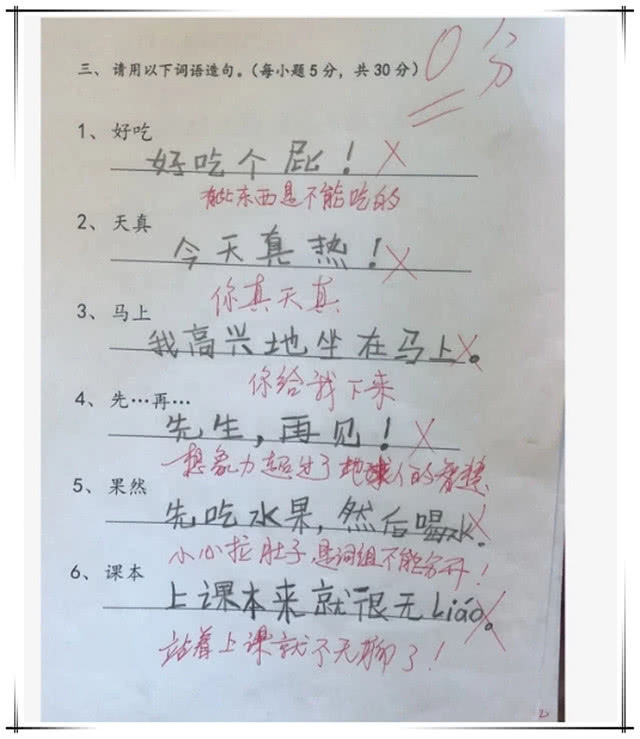 三、请用以下词语造句。(每小题5分，共30分)
0分
1、好吃
好吃个屁！
有些东西是不能吃的
2、天真
今天真热！
你真天真
3、马上
我高兴地坐在马上。
你给我下来
4、先…再…
先生，再见！
想象力超过了地球人的智慧
5、果然
先吃水果，然后喝水。
小心拉肚子，是词组不能分开！
6、课本
上课本来就很无Liáo。
站着上课就不无聊了！